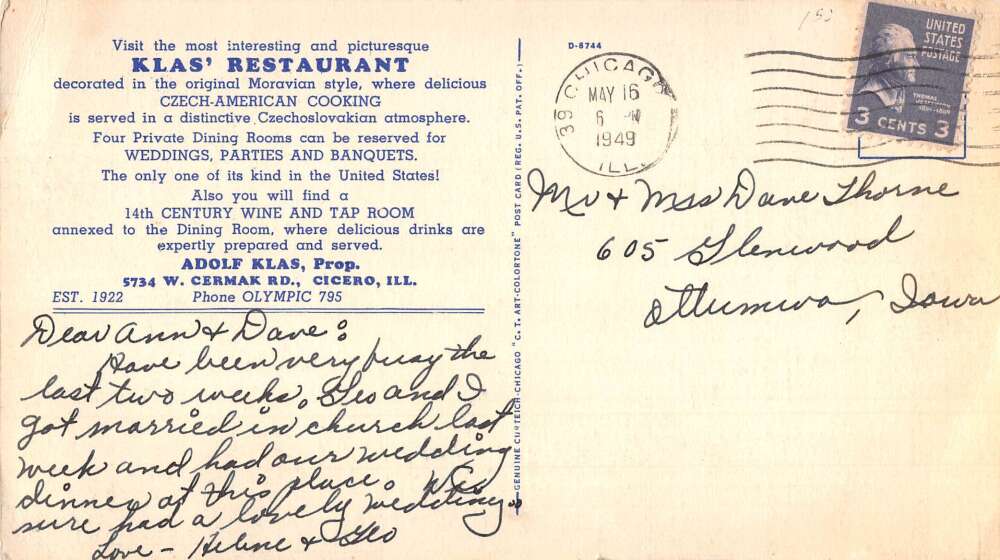 Visit the most interesting and picturesque
KLAS' RESTAURANT
decorated in the original Moravian style, where delicious
CZECH-AMERICAN COOKING
is served in a distinctive Czechoslovakian atmosphere.
Four Private Dining Rooms can be reserved for
WEDDINGS, PARTIES AND BANQUETS.
The only one of its kind in the United States!
Also you will find a
14th CENTURY WINE AND TAP ROOM
annexed to the Dining Room, where delicious drinks are
expertly prepared and served.
ADOLF KLAS, Prop.
5734 W. CERMAK RD., CICERO, ILL.
EST. 1922 Phone OLYMPIC 795
Dear Ann & Dave:
Have been very busy the
last two weeks. Geo and I
got married in church last
week and had our wedding
dinner at this place. We
sure had a lovely wedding.
Love - Helene & Geo
GENUINE CURTEICH-CHICAGO "C. T. ART-COLORTONE" POST CARD (REG. U.S. PAT. OFF.)
D-8744
39 CHICAGO
MAY 16
6
1949
ILL
UNITED
STATES
POSTAGE
THOMAS
JEFFERSON
3 CENTS 3
Mr & Mrs Dave Thorne
605 Glenwood
Ottumwa, Iowa